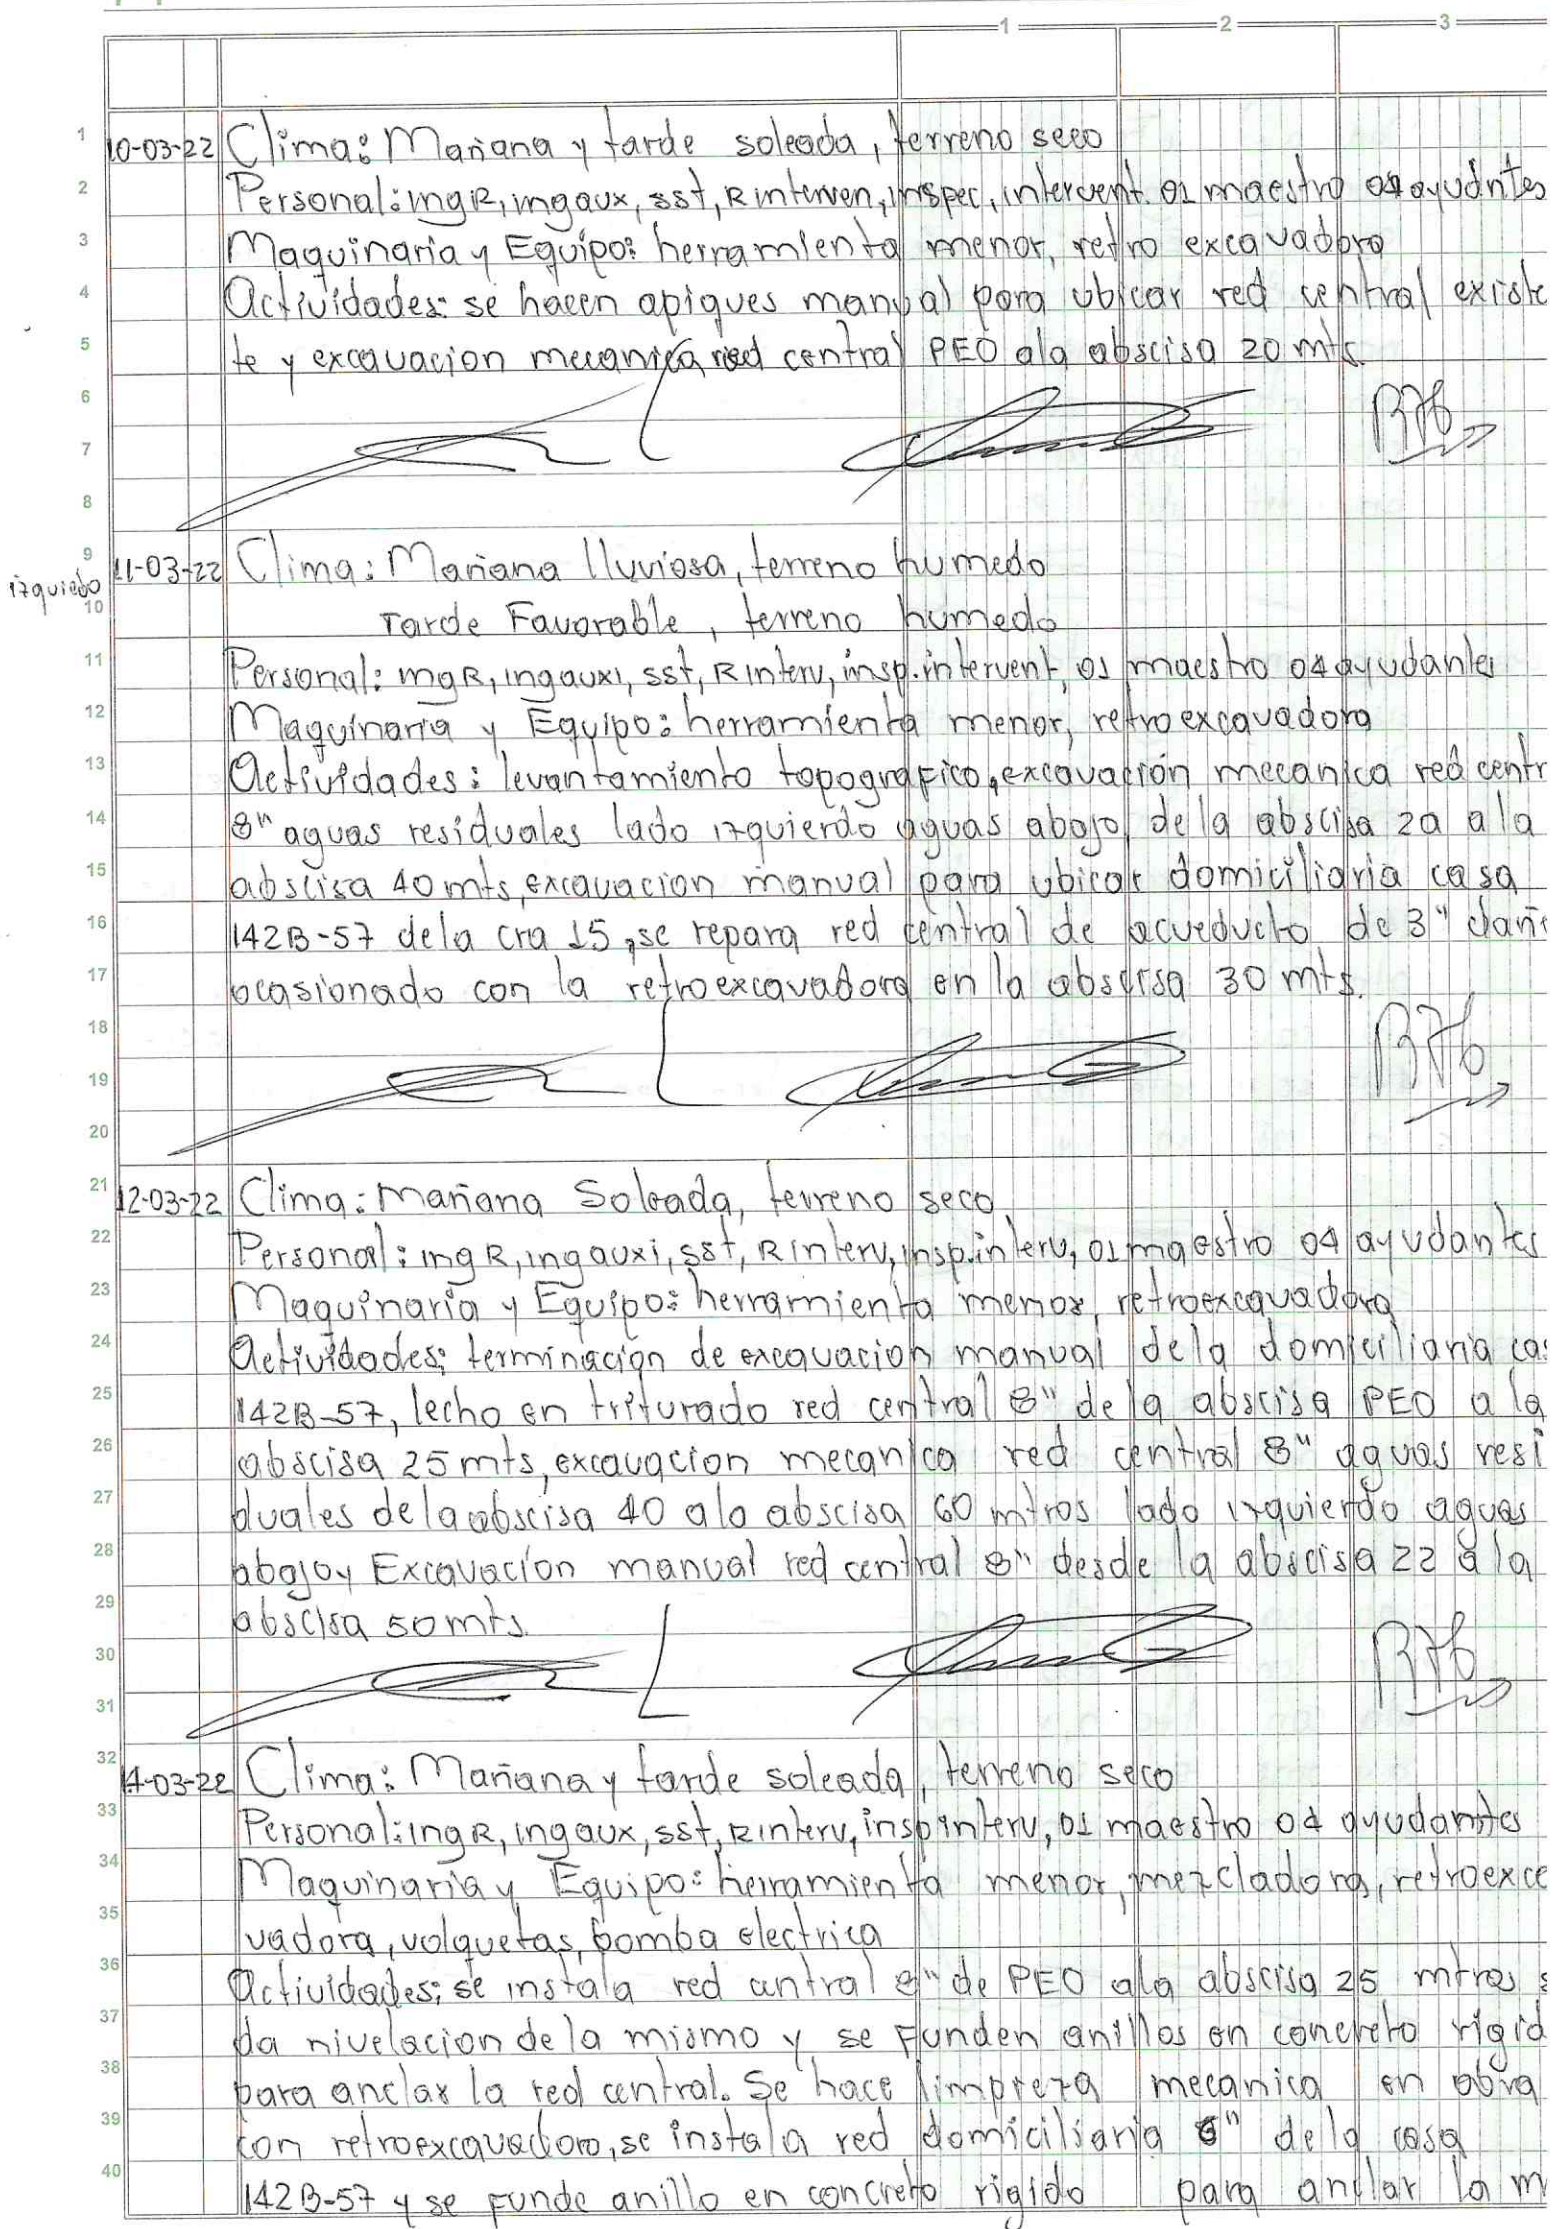 1 2 3
1 10-03-22 Clima: Mañana y tarde soleada, terreno seco
2 Personal: ingR, ingaux, sst, R interven, inspec, intervent. 01 maestro 04 ayudntes
3 Maquinaria y Equipo: herramienta menor, retro excavadora
4 Actividades: se hacen apiques manual para ubicar red central existe
5 te y excavacion mecanica red central PEO ala abscisa 20 mts.
6
7
8
9 11-03-22 Clima: Mañana lluviosa, terreno humedo
izquiedo
10 Tarde Favorable, terreno humedo
11 Personal: ingR, ingauxi, sst, R interv, insp. intervent, 01 maestro 04 ayudantes
12 Maquinaria y Equipo: herramienta menor, retroexcavadora
13 Actividades: levantamiento topografico, excavación mecanica red centr
14 8" aguas residuales lado izquierdo aguas abajo de la abscisa 20 a la
15 abscisa 40 mts, excavacion manual para ubicar domiciliaria casa
16 142B-57 dela cra 15, se repara red central de acueducto de 3" dañ
17 ocasionado con la retroexcavadora en la abscisa 30 mts.
18
19
20
21 12-03-22 Clima: Mañana Soleada, terreno seco
22 Personal: ing R, ingauxi, sst, R interv, insp. interv, 01 maestro 04 ayudantes
23 Maquinaria y Equipo: herramienta menor, retroexcavadora
24 Actividades: terminacion de excavacion manual dela domiciliaria cas
25 142B-57, lecho en triturado red central 8" de la abscisa PEO a la
26 abscisa 25 mts, excavacion mecanica red central 8" aguas resi
27 duales de la abscisa 40 ala abscisa 60 mtros lado izquierdo aguas
28 abajo y Excavacion manual red central 8" desde la abscisa 22 a la
29 abscisa 50 mts.
30
31
32 14-03-22 Clima: Mañana y tarde soleada, terreno seco
33 Personal: ingR, ingaux, sst, R interv, insp interv, 01 maestro 04 ayudantes
34 Maquinaria y Equipo: herramienta menor, mezcladora, retroexce
35 vadora, volquetas, bomba electrica
36 Actividades: se instala red central 8" de PEO ala abscisa 25 mtros s
37 da nivelacion de la mismo y se Funden anillos en concreto rigid
38 para anclar la red central. Se hace limpieza mecanica en obra
39 con retroexcavadora, se instala red domiciliaria 6" dela casa
40 142B-57 y se Funde anillo en concreto rigido para anclar la m